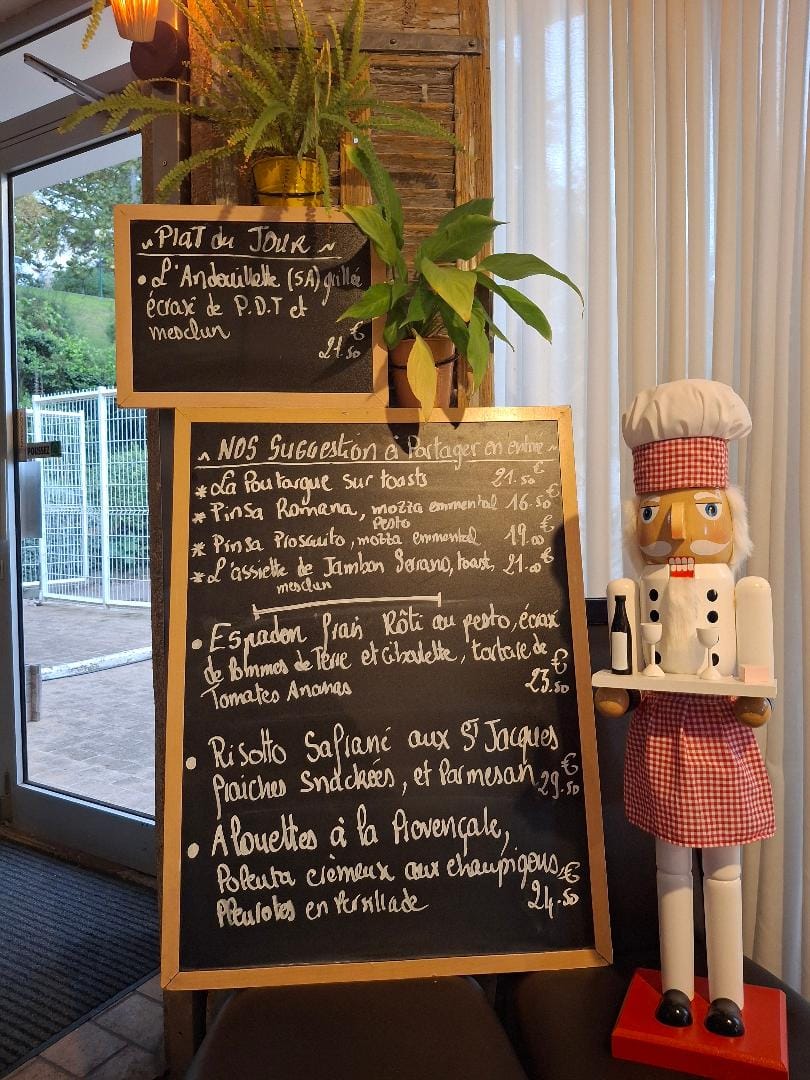 ~ PLAT du JOUR ~
• L'Andouillette (5A) grillée
écrasé de P.D.T et
mesclun
21.50 €
~ NOS SuggEstion à Partager en entrée ~
* La Poutargue sur toasts 21.50 €
* Pinsa Romana, mozza emmental 16.50 €
Pesto
* Pinsa Prosciuto, mozza emmental 19.00 €
* L'assiette de Jambon Serrano, toast, 21.00 €
mesclun
• Espadon frais Rôti au pesto, écrasé
de Pommes de Terre et ciboulette, tartare de
Tomates Ananas 23.50 €
• Risotto Safrané aux St Jacques
fraiches snackées, et Parmesan 29.50 €
• Alouettes à la Provençale,
Polenta crèmeux aux champignons,
Pleurotes en Persillade 24.50 €
POUSSEZ